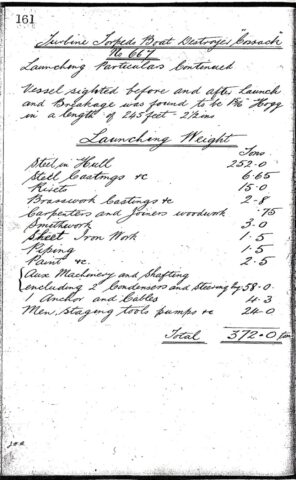 161
Turbine Torpedo Boat Destroyer "Cossack"
No 667
Launching Particulars Continued
Vessel sighted before and after Launch
and Breakage was found to be Hogg
in a length of 245 feet - 2½ ins
Launching Weight
Tons
Steel in Hull 252.0
Steel Castings &c 6.65
Rivets 15.0
Brasswork Castings &c 2.8
Carpenters and Joiners woodwork .75
Smithwork 3.0
Sheet Iron Work 1.5
Piping 1.5
Paint &c. 2.5
Aux Machinery and Shafting
including 2 Condensers and Steering Eng 58.0
1 Anchor and Cables 4.3
Men, Staging tools pumps &c 24.0
Total 372.0 tons